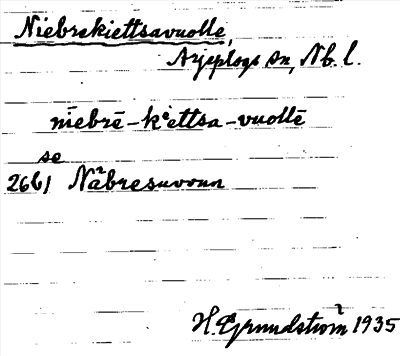 Niebrekiettsavuolle,
Arjeplogs sn, Nb. l.
niebrē-kiettsa-vuollē
se
2661 Näbresuvoun
H. Grundström 1935